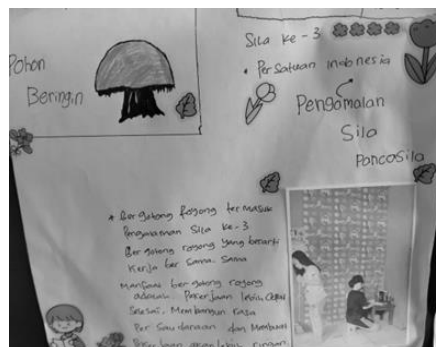 Pohon
Beringin
Sila ke-3
• Persatuan Indonesia
Pengamalan
Sila
Pancasila
* Bergotong Royong termasuk
Pengamalan Sila ke-3
Bergotong royong yang berarti
Kerja ber Sama-Sama
Manfaat bergotong royong
adalah Pekerjaan lebih cepat
Selesai. Membangun rasa
Per Saudaraan dan Membuat
Pekerjaan akan lebih ringan